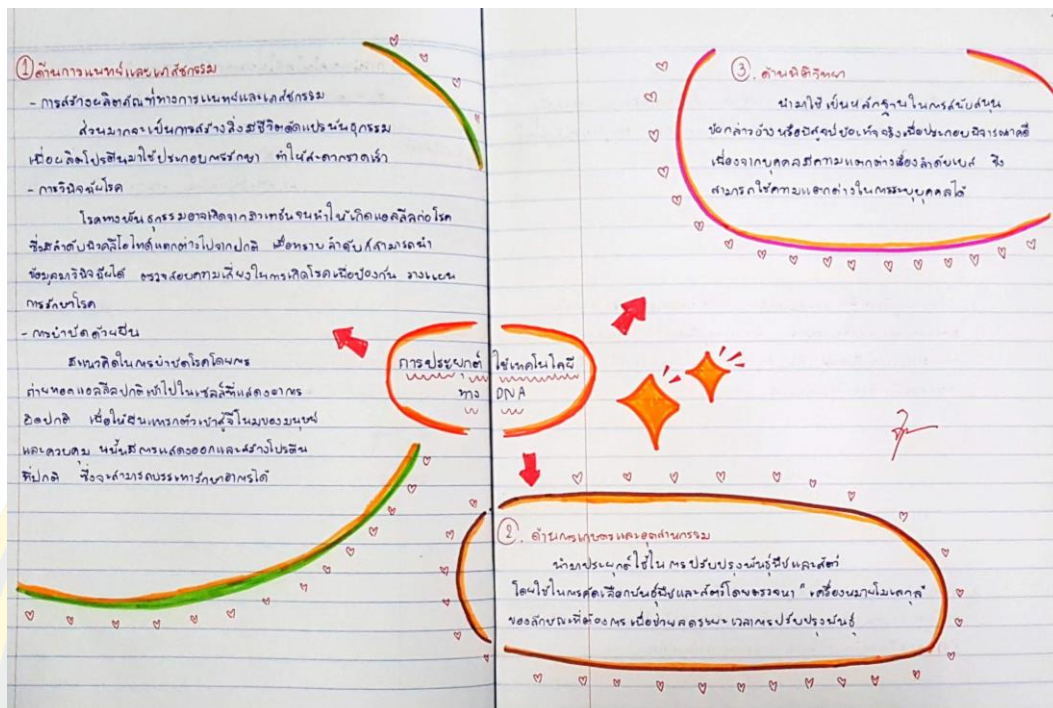 ① ด้านการแพทย์และเภสัชกรรม
- การสร้างผลิตภัณฑ์ทางการแพทย์และเภสัชกรรม
ส่วนมากจะเป็นการสร้างสิ่งมีชีวิตดัดแปรพันธุกรรม
เพื่อผลิตโปรตีนมาใช้ประกอบการรักษา ทำให้สะดวกรวดเร็ว
- การวินิจฉัยโรค
โรคทางพันธุกรรมอาจเกิดจากมิวเทชันจนทำให้เกิดแอลลีลก่อโรค
ซึ่งมีลำดับนิวคลีโอไทด์แตกต่างไปจากปกติ เมื่อทราบลำดับก็สามารถนำ
ข้อมูลมาวินิจฉัยได้ ตรวจสอบความเสี่ยงในการเกิดโรคเพื่อป้องกัน วางแผน
การรักษาโรค
- การบำบัดด้วยยีน
มีแนวคิดในการบำบัดโรคโดยการ
ถ่ายทอดแอลลีลปกติเข้าไปในเซลล์ที่แสดงอาการ
ผิดปกติ เพื่อให้ยีนแทรกตัวเข้าสู่จีโนมของมนุษย์
และควบคุม ให้มีการแสดงออกและสร้างโปรตีน
ที่ปกติ ซึ่งจะสามารถบรรเทารักษาอาการได้
การประยุกต์ ใช้เทคโนโลยี
ทาง DNA
③. ด้านนิติวิทยา
นำมาใช้เป็นหลักฐานในการสนับสนุน
ข้อกล่าวอ้างหรือพิสูจน์ข้อเท็จจริงเพื่อประกอบพิจารณาคดี
เนื่องจากบุคคลมีความแตกต่างเรื่องลำดับเบส ซึ่ง
สามารถใช้ความแตกต่างในการระบุบุคคลได้
②. ด้านการเกษตรและอุตสาหกรรม
นำมาประยุกต์ใช้ในการปรับปรุงพันธุ์พืชและสัตว์
โดยใช้ในการคัดเลือกพันธุ์พืชและสัตว์โดยตรวจหา "เครื่องหมายโมเลกุล"
ของลักษณะที่ต้องการ เพื่อช่วยลดระยะเวลาการปรับปรุงพันธุ์